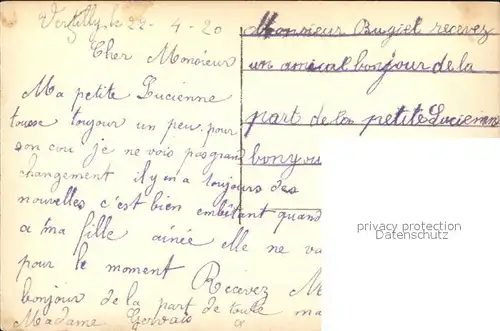 Vertilly le 22-4-20
Cher Monsieur
Ma petite Lucienne
tousse toujour un peu. pour
son cou je ne vois pas grand
changement il y en a toujours des
nouvelles c'est bien embêtant quand
a ma fille ainée elle ne va
pour le moment Recevez M
bonjour de la part de toute ma
Madame Gervais
Monsieur Bugiel recevez
un amical bonjour de la
part de la petite Lucienne
bonjou
privacy protection
Datenschutz